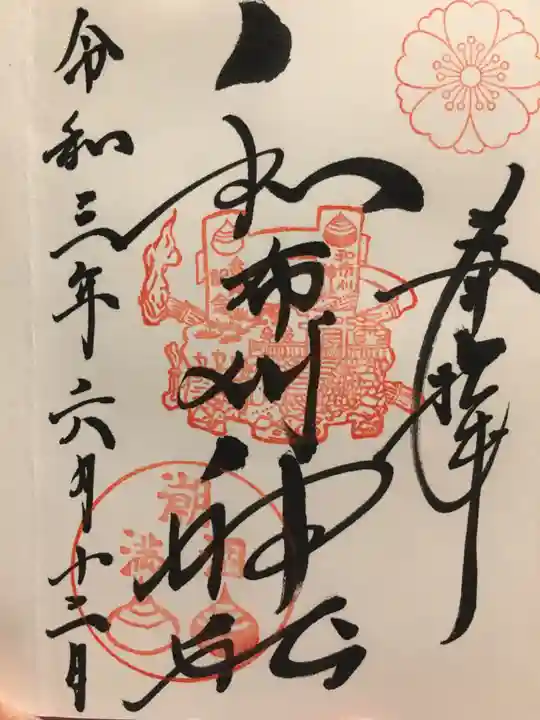 奉拝
和布刈神社
和布刈
潮
満
令和三年六月十三日